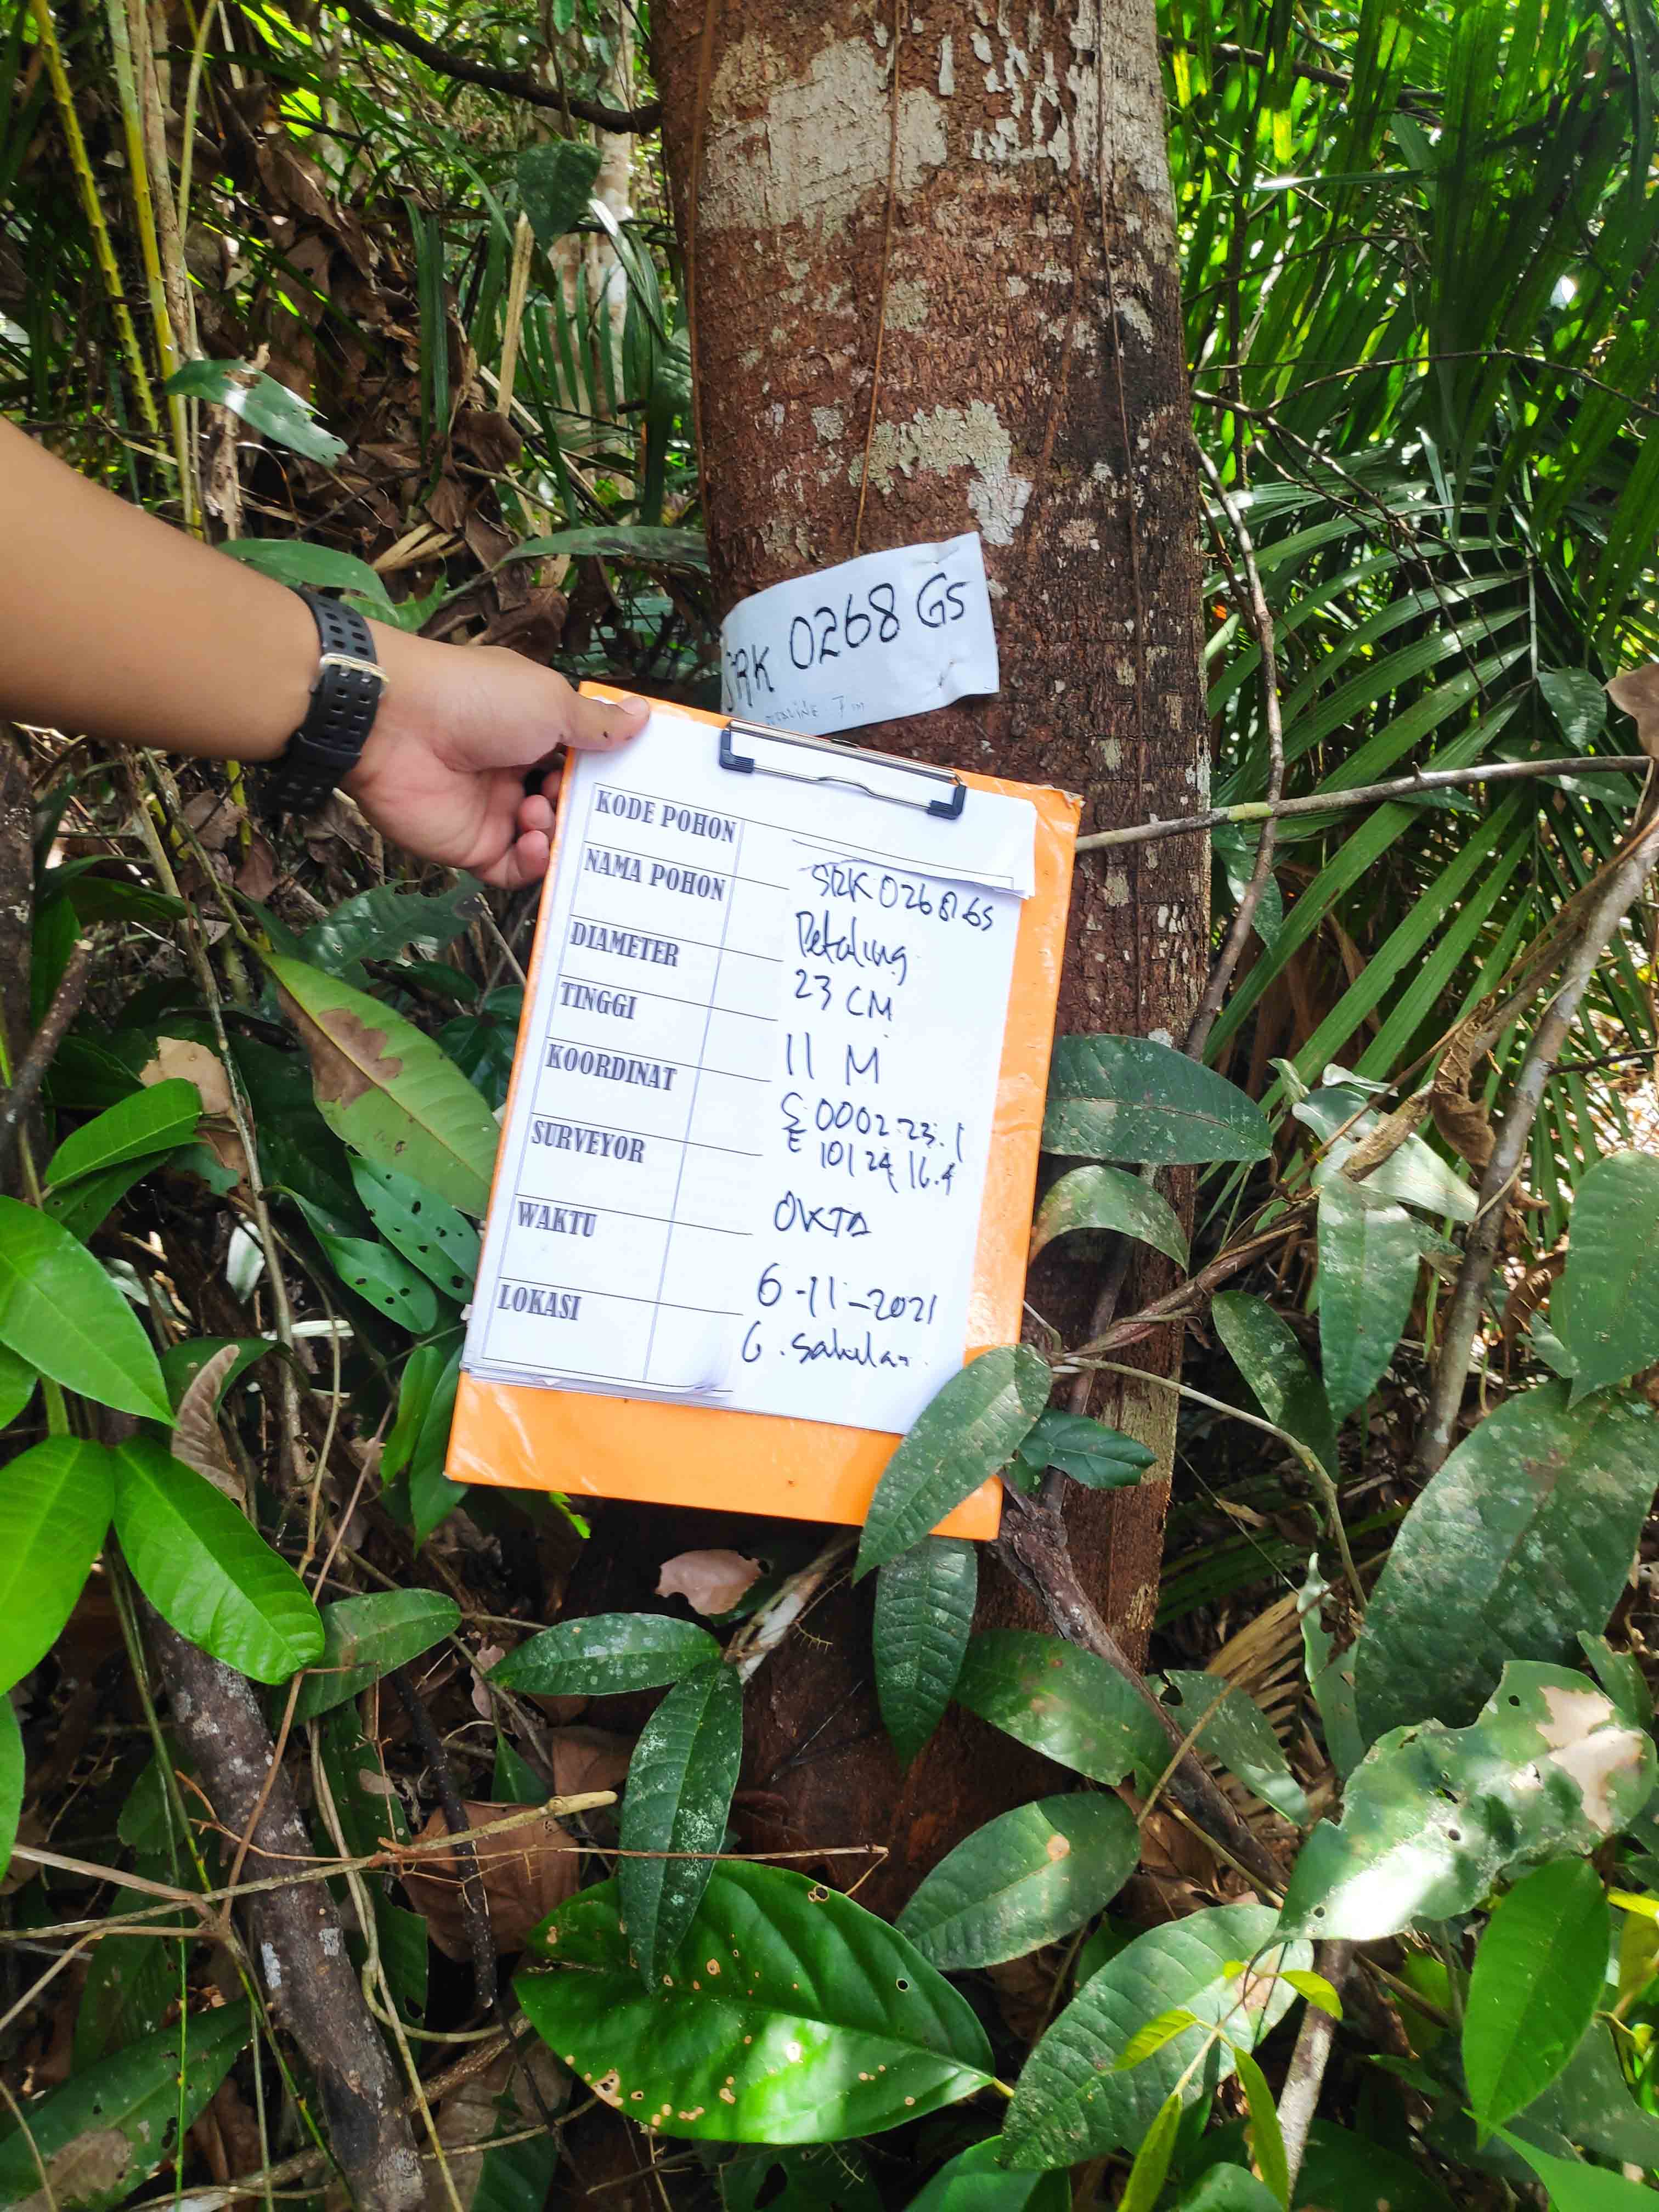 SRK 0268 GS
7 m
KODE POHON SRK 0268 GS
NAMA POHON Petaling
DIAMETER 23 CM
TINGGI 11 M
KOORDINAT S 0002.23.1
E 101 24 16.4
SURVEYOR OKTA
WAKTU 6-11-2021
LOKASI G.